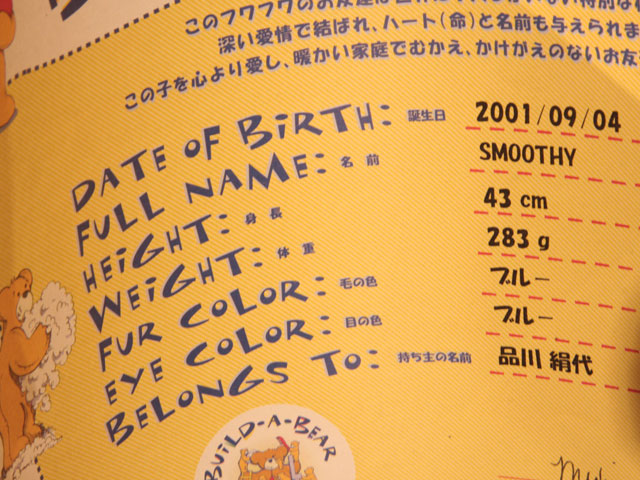 このフワフワのお友達は世界に
深い愛情で結ばれ、ハート(命)と名前も与えられま
この子を心より愛し、暖かい家庭でむかえ、かけがえのないお友
DATE OF BiRTH: 誕生日 2001/09/04
FULL NAME: 名前 SMOOTHY
HEiGHT: 身長 43 cm
WEiGHT: 体重 283 g
FUR COLOR: 毛の色 ブルー
EYE COLOR: 目の色 ブルー
BELONGS TO: 持ち主の名前 品川 絹代
BUiLD-A-BEAR